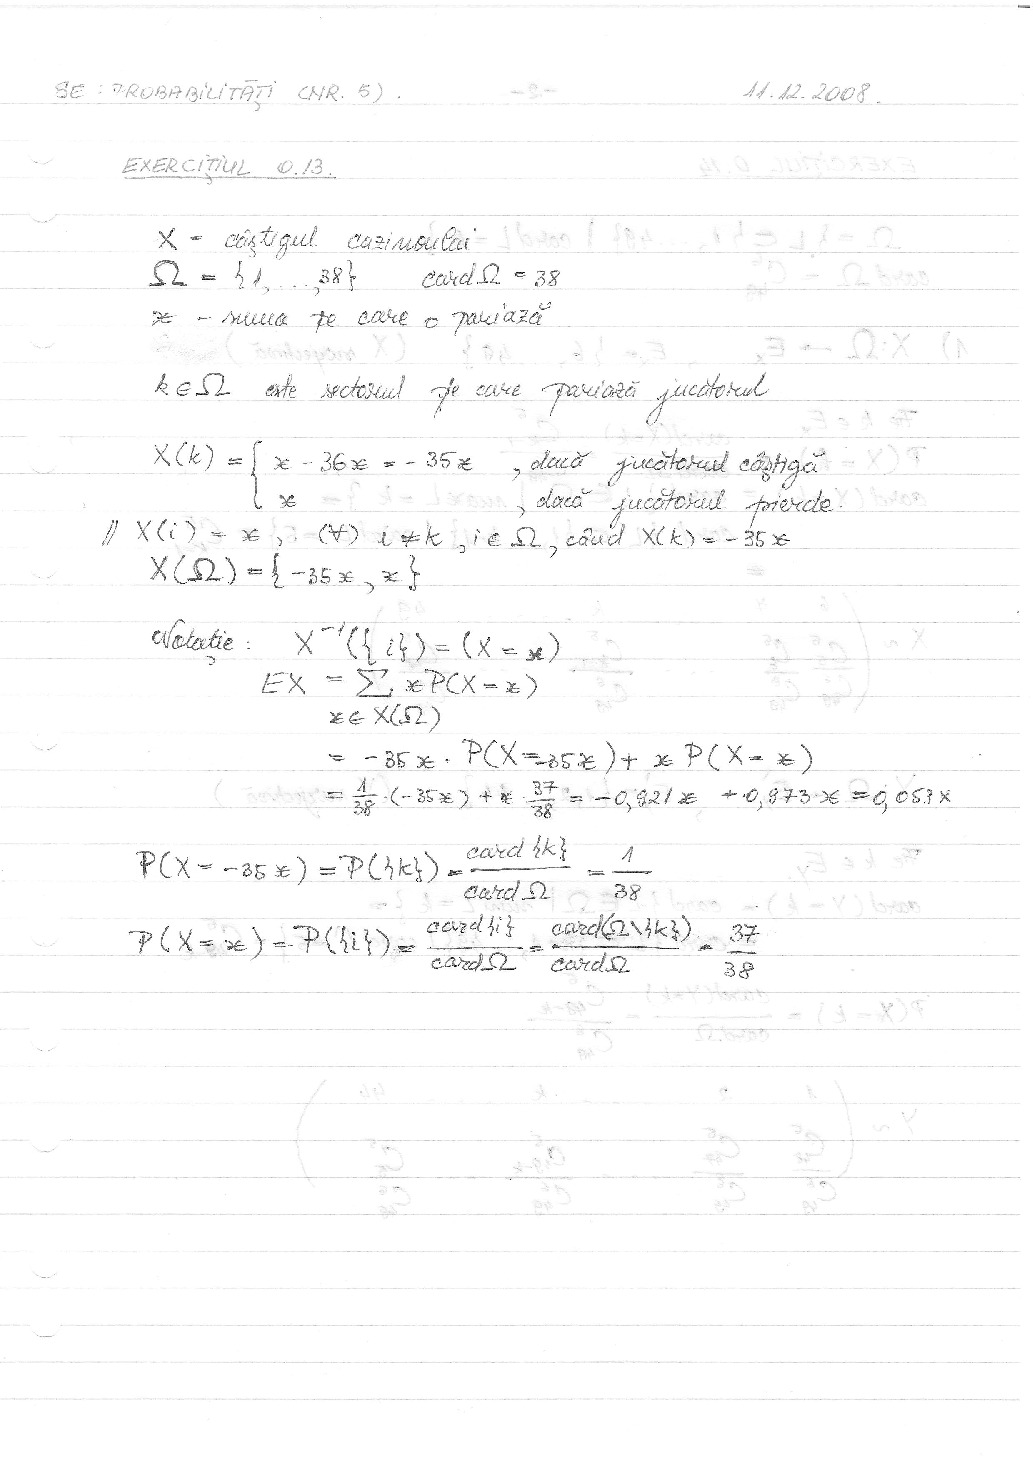 SE: PROBABILITĂŢI (NR. 5). 11.12.2008.
EXERCIŢIUL 0.13.
X - câştigul cazinoului
Ω = {1, ..., 38} card Ω = 38
x - suma pe care o pariază
k ∈ Ω este sectorul pe care pariază jucătorul
X(k) = { x - 36x = -35x , dacă jucătorul câştigă
x , dacă jucătorul pierde.
// X(i) = x, (∀) i ≠ k, i ∈ Ω, când X(k) = -35x
X(Ω) = {-35x, x}
Notaţie: X⁻¹({i}) = (X = x)
EX = Σ x P(X = x)
x ∈ X(Ω)
= -35x · P(X = -35x) + x P(X = x)
= 1/38 · (-35x) + x · 37/38 = -0,921x + 0,973·x = 0,053x
P(X = -35x) = P({k}) = card {k} / card Ω = 1/38
P(X = x) = P({i}) = card{i} / card Ω = card(Ω\{k}) / card Ω = 37/38